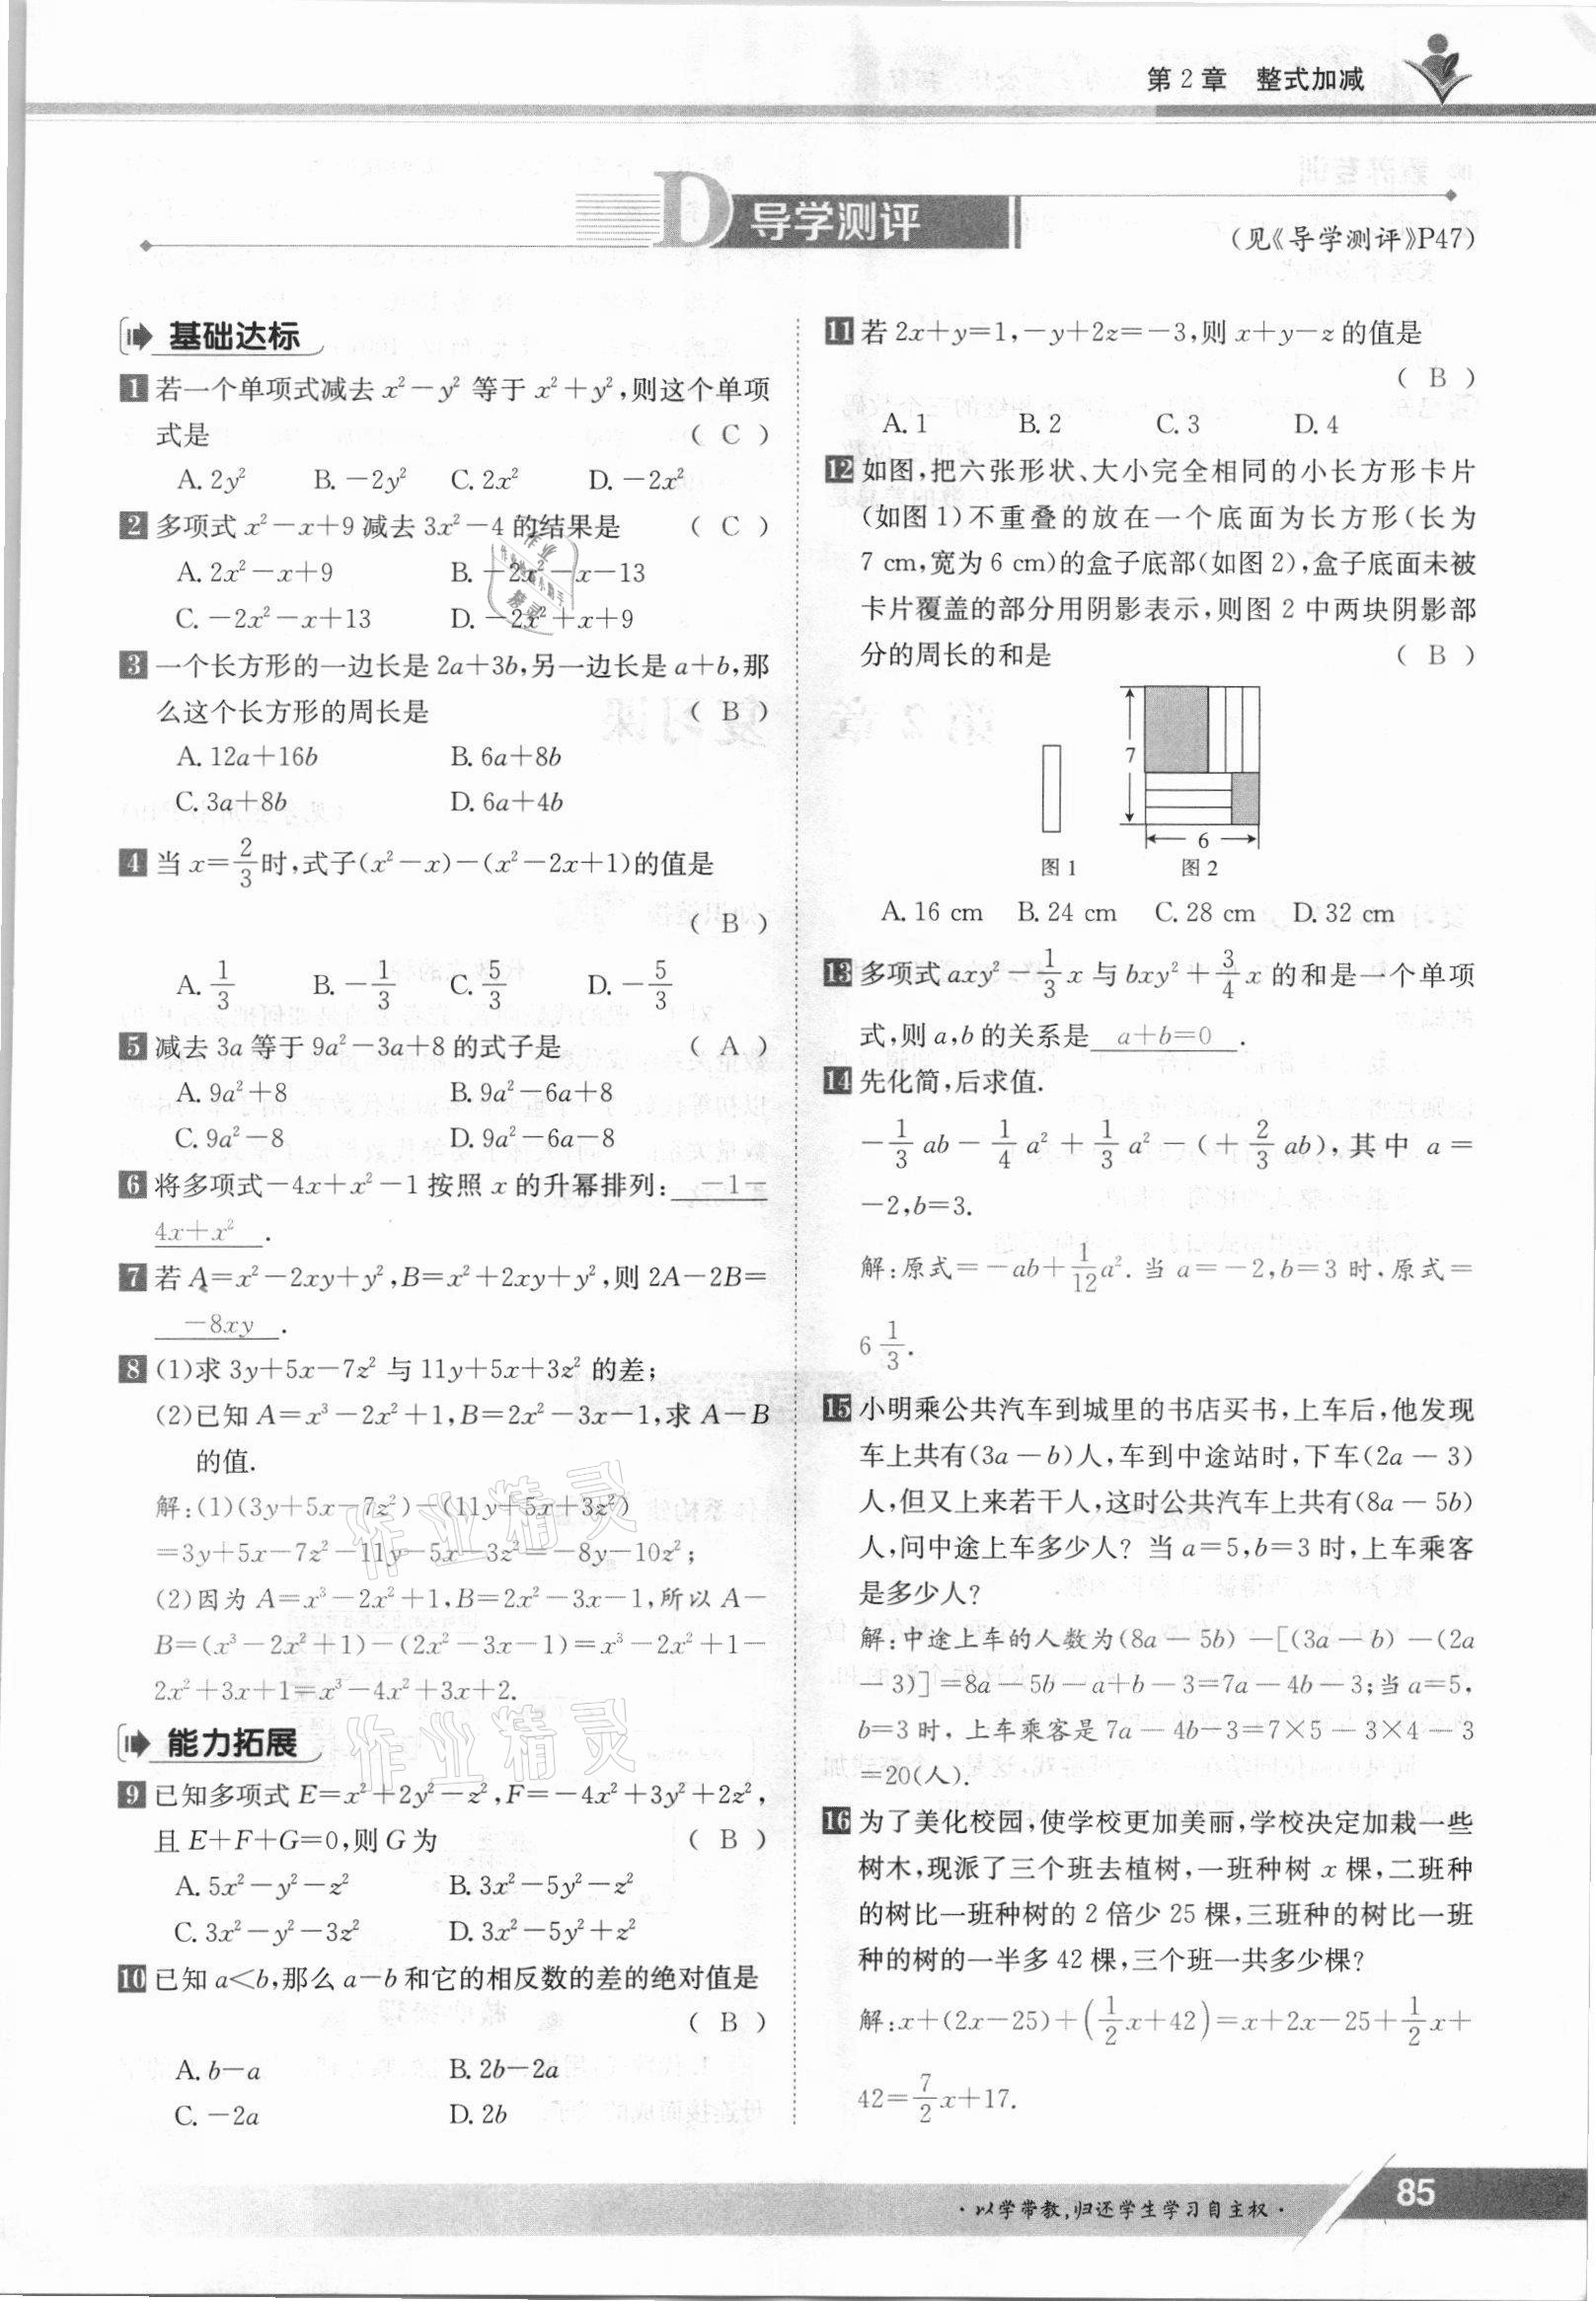 第2章 整式加减
D 导学测评
(见《导学测评》P47)
基础达标
1 若一个单项式减去 x²－y² 等于 x²＋y²,则这个单项
式是 ( C )
A. 2y² B. －2y² C. 2x² D. －2x²
2 多项式 x²－x＋9 减去 3x²－4 的结果是 ( C )
A. 2x²－x＋9 B. －2x²－x－13
C. －2x²－x＋13 D. －2x²＋x＋9
3 一个长方形的一边长是 2a＋3b,另一边长是 a＋b,那
么这个长方形的周长是 ( B )
A. 12a＋16b B. 6a＋8b
C. 3a＋8b D. 6a＋4b
4 当 x＝2/3时,式子(x²－x)－(x²－2x＋1)的值是
( B )
A. 1/3 B. －1/3 C. 5/3 D. －5/3
5 减去 3a 等于 9a²－3a＋8 的式子是 ( A )
A. 9a²＋8 B. 9a²－6a＋8
C. 9a²－8 D. 9a²－6a－8
6 将多项式－4x＋x²－1 按照 x 的升幂排列: －1－
4x＋x² .
7 若 A＝x²－2xy＋y²,B＝x²＋2xy＋y²,则 2A－2B＝
－8xy .
8 (1)求 3y＋5x－7z² 与 11y＋5x＋3z² 的差;
(2)已知 A＝x³－2x²＋1,B＝2x²－3x－1,求 A－B
的值.
解:(1)(3y＋5x－7z²)－(11y＋5x＋3z²)
＝3y＋5x－7z²－11y－5x－3z²＝－8y－10z²;
(2)因为 A＝x³－2x²＋1,B＝2x²－3x－1,所以 A－
B＝(x³－2x²＋1)－(2x²－3x－1)＝x³－2x²＋1－
2x²＋3x＋1＝x³－4x²＋3x＋2.
能力拓展
9 已知多项式 E＝x²＋2y²－z²,F＝－4x²＋3y²＋2z²,
且 E＋F＋G＝0,则 G 为 ( B )
A. 5x²－y²－z² B. 3x²－5y²－z²
C. 3x²－y²－3z² D. 3x²－5y²＋z²
10 已知 a＜b,那么 a－b 和它的相反数的差的绝对值是
( B )
A. b－a B. 2b－2a
C. －2a D. 2b
11 若 2x＋y＝1,－y＋2z＝－3,则 x＋y－z 的值是
( B )
A. 1 B. 2 C. 3 D. 4
12 如图,把六张形状、大小完全相同的小长方形卡片
(如图 1)不重叠的放在一个底面为长方形(长为
7 cm,宽为 6 cm)的盒子底部(如图 2),盒子底面未被
卡片覆盖的部分用阴影表示,则图 2 中两块阴影部
分的周长的和是 ( B )
7
6
图 1 图 2
A. 16 cm B. 24 cm C. 28 cm D. 32 cm
13 多项式 axy²－1/3 x 与 bxy²＋3/4 x 的和是一个单项
式,则 a,b 的关系是 a＋b＝0 .
14 先化简,后求值.
－1/3 ab－1/4 a²＋1/3 a²－(＋2/3 ab),其中 a＝
－2,b＝3.
解:原式＝－ab＋1/12 a². 当 a＝－2,b＝3 时,原式＝
6 1/3.
15 小明乘公共汽车到城里的书店买书,上车后,他发现
车上共有(3a－b)人,车到中途站时,下车(2a－3)
人,但又上来若干人,这时公共汽车上共有(8a－5b)
人,问中途上车多少人? 当 a＝5,b＝3 时,上车乘客
是多少人?
解:中途上车的人数为(8a－5b)－[(3a－b)－(2a
－3)]＝8a－5b－a＋b－3＝7a－4b－3;当 a＝5,
b＝3 时,上车乘客是 7a－4b－3＝7×5－3×4－3
＝20(人).
16 为了美化校园,使学校更加美丽,学校决定加栽一些
树木,现派了三个班去植树,一班种树 x 棵,二班种
的树比一班种树的 2 倍少 25 棵,三班种的树比一班
种的树的一半多 42 棵,三个班一共多少棵?
解:x＋(2x－25)＋(1/2 x＋42)＝x＋2x－25＋1/2 x＋
42＝7/2 x＋17.
作业精灵
作业精灵
·以学带教,归还学生学习自主权·
85